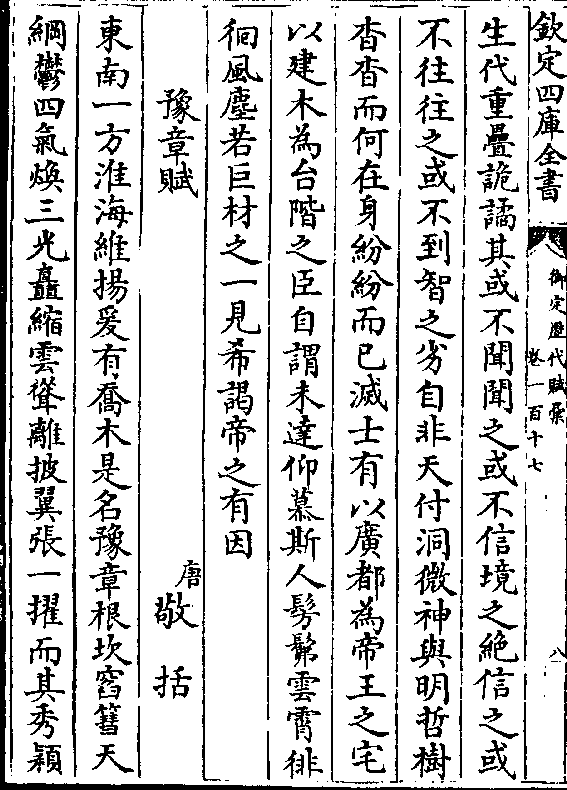 欽定四庫全書
御定歷代賦彙
卷一百十七
八
生代重疊詭譎其或不聞聞之或不信境之絶信之或
不往往之或不到智之劣自非天付洞微神與明哲樹
杳杳而何在身紛紛而已滅士有以廣都為帝王之宅
以建木為台階之臣自謂未達仰慕斯人髣髴雲霄徘
徊風塵若巨材之一見希謁帝之有因
豫章賦
唐敬括
東南一方淮海維揚爰有喬木是名豫章根坎窞簪天
綱鬱四氣煥三光矗縮雲聳離披翼張一擢而其秀穎